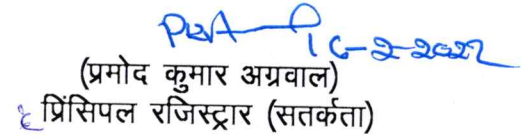 16-2-2022
(प्रमोद कुमार अग्रवाल)
प्रिंसिपल रजिस्ट्रार (सतर्कता)